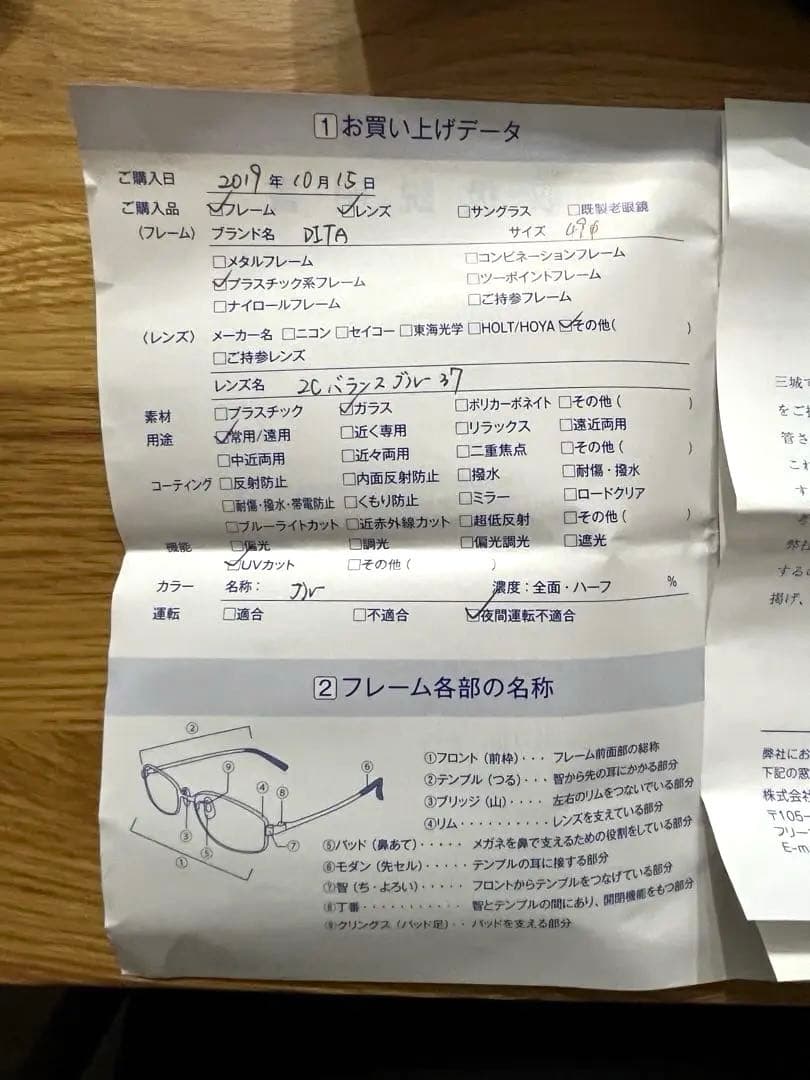 1 お買い上げデータ
ご購入日 2019年10月15日
ご購入品 ☑フレーム ☑レンズ □サングラス □既製老眼鏡
(フレーム) ブランド名 DITA サイズ
□メタルフレーム □コンビネーションフレーム
☑プラスチック系フレーム □ツーポイントフレーム
□ナイロールフレーム □ご持参フレーム
(レンズ) メーカー名 □ニコン □セイコー □東海光学 □HOLT/HOYA ☑その他( )
□ご持参レンズ
レンズ名 2C バランスブルー 37
素材 □プラスチック ☑ガラス □ポリカーボネイト □その他( )
用途 ☑常用/遠用 □近く専用 □リラックス □遠近両用
□中近両用 □近々両用 □二重焦点 □その他( )
コーティング □反射防止 □内面反射防止 □撥水 □耐傷・撥水
□耐傷・撥水・帯電防止 □くもり防止 □ミラー □ロードクリア
□ブルーライトカット □近赤外線カット □超低反射 □その他( )
機能 □偏光 □調光 □偏光調光 □遮光
☑UVカット □その他( )
カラー 名称: ブルー 濃度:全面・ハーフ %
運転 □適合 □不適合 ☑夜間運転不適合
2 フレーム各部の名称
② ⑨ ④ ⑧ ⑥ ③ ⑤ ⑦ ①
①フロント(前枠)・・・ フレーム前面部の総称
②テンプル(つる)・・・ 智から先の耳にかかる部分
③ブリッジ(山)・・・・ 左右のリムをつないでいる部分
④リム・・・・・・・・・・ レンズを支えている部分
⑤パッド(鼻あて)・・・・・ メガネを鼻で支えるための役割をしている部分
⑥モダン(先セル)・・・・・ テンプルの耳に接する部分
⑦智(ち・よろい)・・・・・ フロントからテンプルをつなげている部分
⑧丁番・・・・・・・・・・・ 智とテンプルの間にあり、開閉機能をもつ部分
⑨クリングス(パッド足)・・ パッドを支える部分
三城
をご
管さ
これ
す
弊社
する
掲げ、
弊社にお
下記の窓
株式会社
〒105-
フリー
E-m